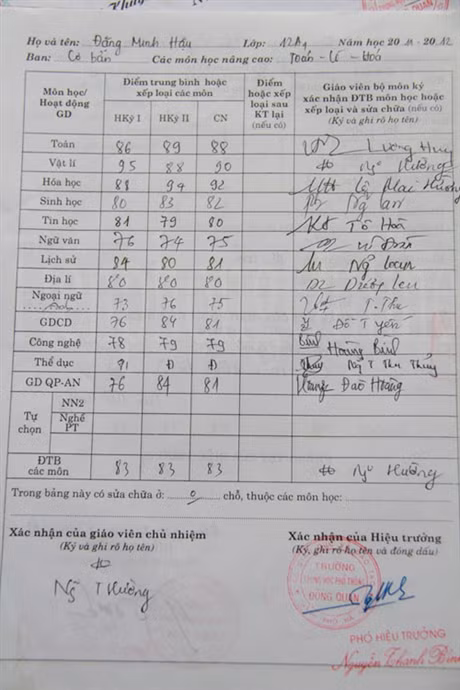 Họ và tên: Đặng Minh Hậu Lớp: 12A1 Năm học 2011 - 2012
Ban: Cơ bản Các môn học nâng cao: Toán - Lí - Hoá
Môn học/ Hoạt động GD | Điểm trung bình hoặc xếp loại các môn | Điểm hoặc xếp loại sau KT lại (nếu có) | Giáo viên bộ môn ký xác nhận ĐTB môn học hoặc xếp loại và sửa chữa (nếu có) (Ký và ghi rõ họ tên)
HKỳ I | HKỳ II | CN
Toán 86 89 88 Lương Huy
Vật lí 95 88 90 Ng Hường
Hóa học 89 94 92 Lê Mai Hương
Sinh học 80 83 82 Ng Lan
Tin học 81 79 80 Tô Hoà
Ngữ văn 76 74 75
Lịch sử 84 80 81 Ng Loan
Địa lí 80 80 80 Dương Len
Ngoại ngữ 73 76 75 T. Thu
GDCD 76 84 81 Đỗ T Yến
Công nghệ 78 79 79 Hoàng Bình
Thể dục Đ Đ Ng T Thu Thủy
GD QP-AN 76 84 81 Đào Hoàng
Tự chọn NN2
Nghề PT
ĐTB các môn 83 83 83 Ng Hường
Trong bảng này có sửa chữa ở: 0 chỗ, thuộc các môn học:
Xác nhận của giáo viên chủ nhiệm
(Ký và ghi rõ họ tên)
Ng T Hường
Xác nhận của Hiệu trưởng
(Ký, ghi rõ họ tên và đóng dấu)
TRƯỜNG
TRUNG HỌC PHỔ THÔNG
ĐỒNG QUAN
PHÓ HIỆU TRƯỞNG
Nguyễn Thành Bình